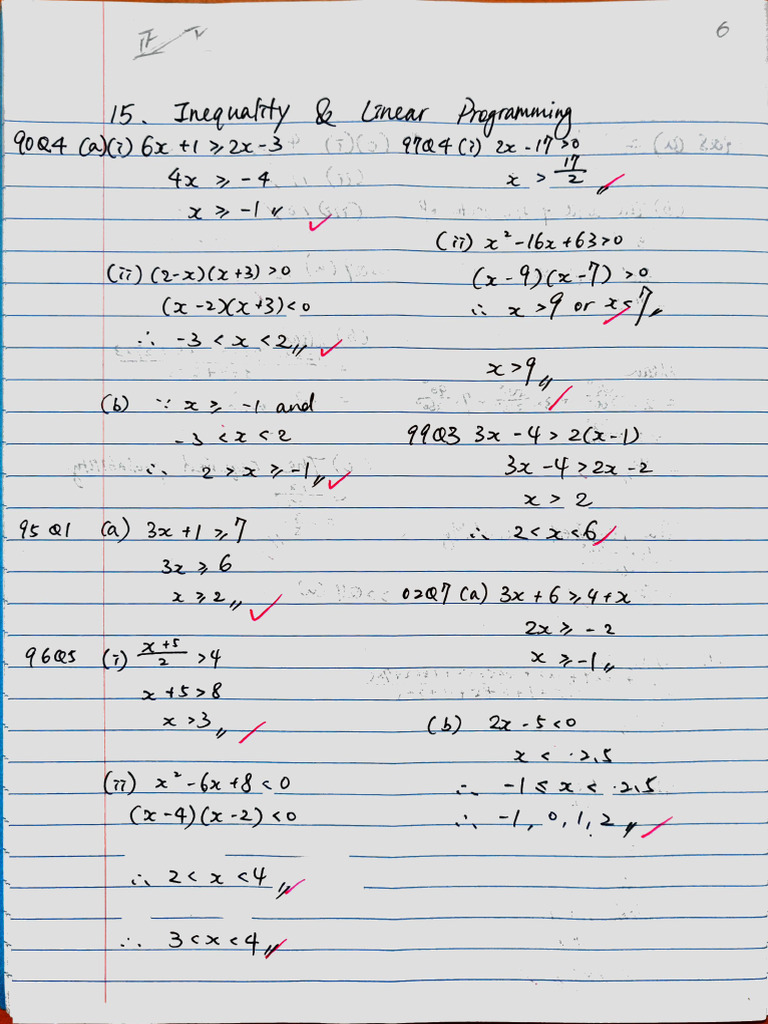 6
15. Inequality & Linear Programming
90Q4 (a)(i) 6x + 1 ⩾ 2x - 3
4x ⩾ -4
x ⩾ -1
(ii) (2-x)(x+3) > 0
(x-2)(x+3) < 0
∴ -3 < x < 2
(b) ∵ x ⩾ -1 and
-3 < x < 2
∴ 2 > x ⩾ -1
95 Q1 (a) 3x + 1 ⩾ 7
3x ⩾ 6
x ⩾ 2
96Q5 (i) (x+5)/2 > 4
x + 5 > 8
x > 3
(ii) x² - 6x + 8 < 0
(x-4)(x-2) < 0
∴ 2 < x < 4
∴ 3 < x < 4
97Q4 (i) 2x - 17 > 0
x > 17/2
(ii) x² - 16x + 63 > 0
(x-9)(x-7) > 0
∴ x > 9 or x < 7
x > 9
99Q3 3x - 4 > 2(x-1)
3x - 4 > 2x - 2
x > 2
∴ 2 < x < 6
02Q7 (a) 3x + 6 ⩾ 4 + x
2x ⩾ -2
x ⩾ -1
(b) 2x - 5 < 0
x < 2.5
∴ -1 ≤ x < 2.5
∴ -1, 0, 1, 2